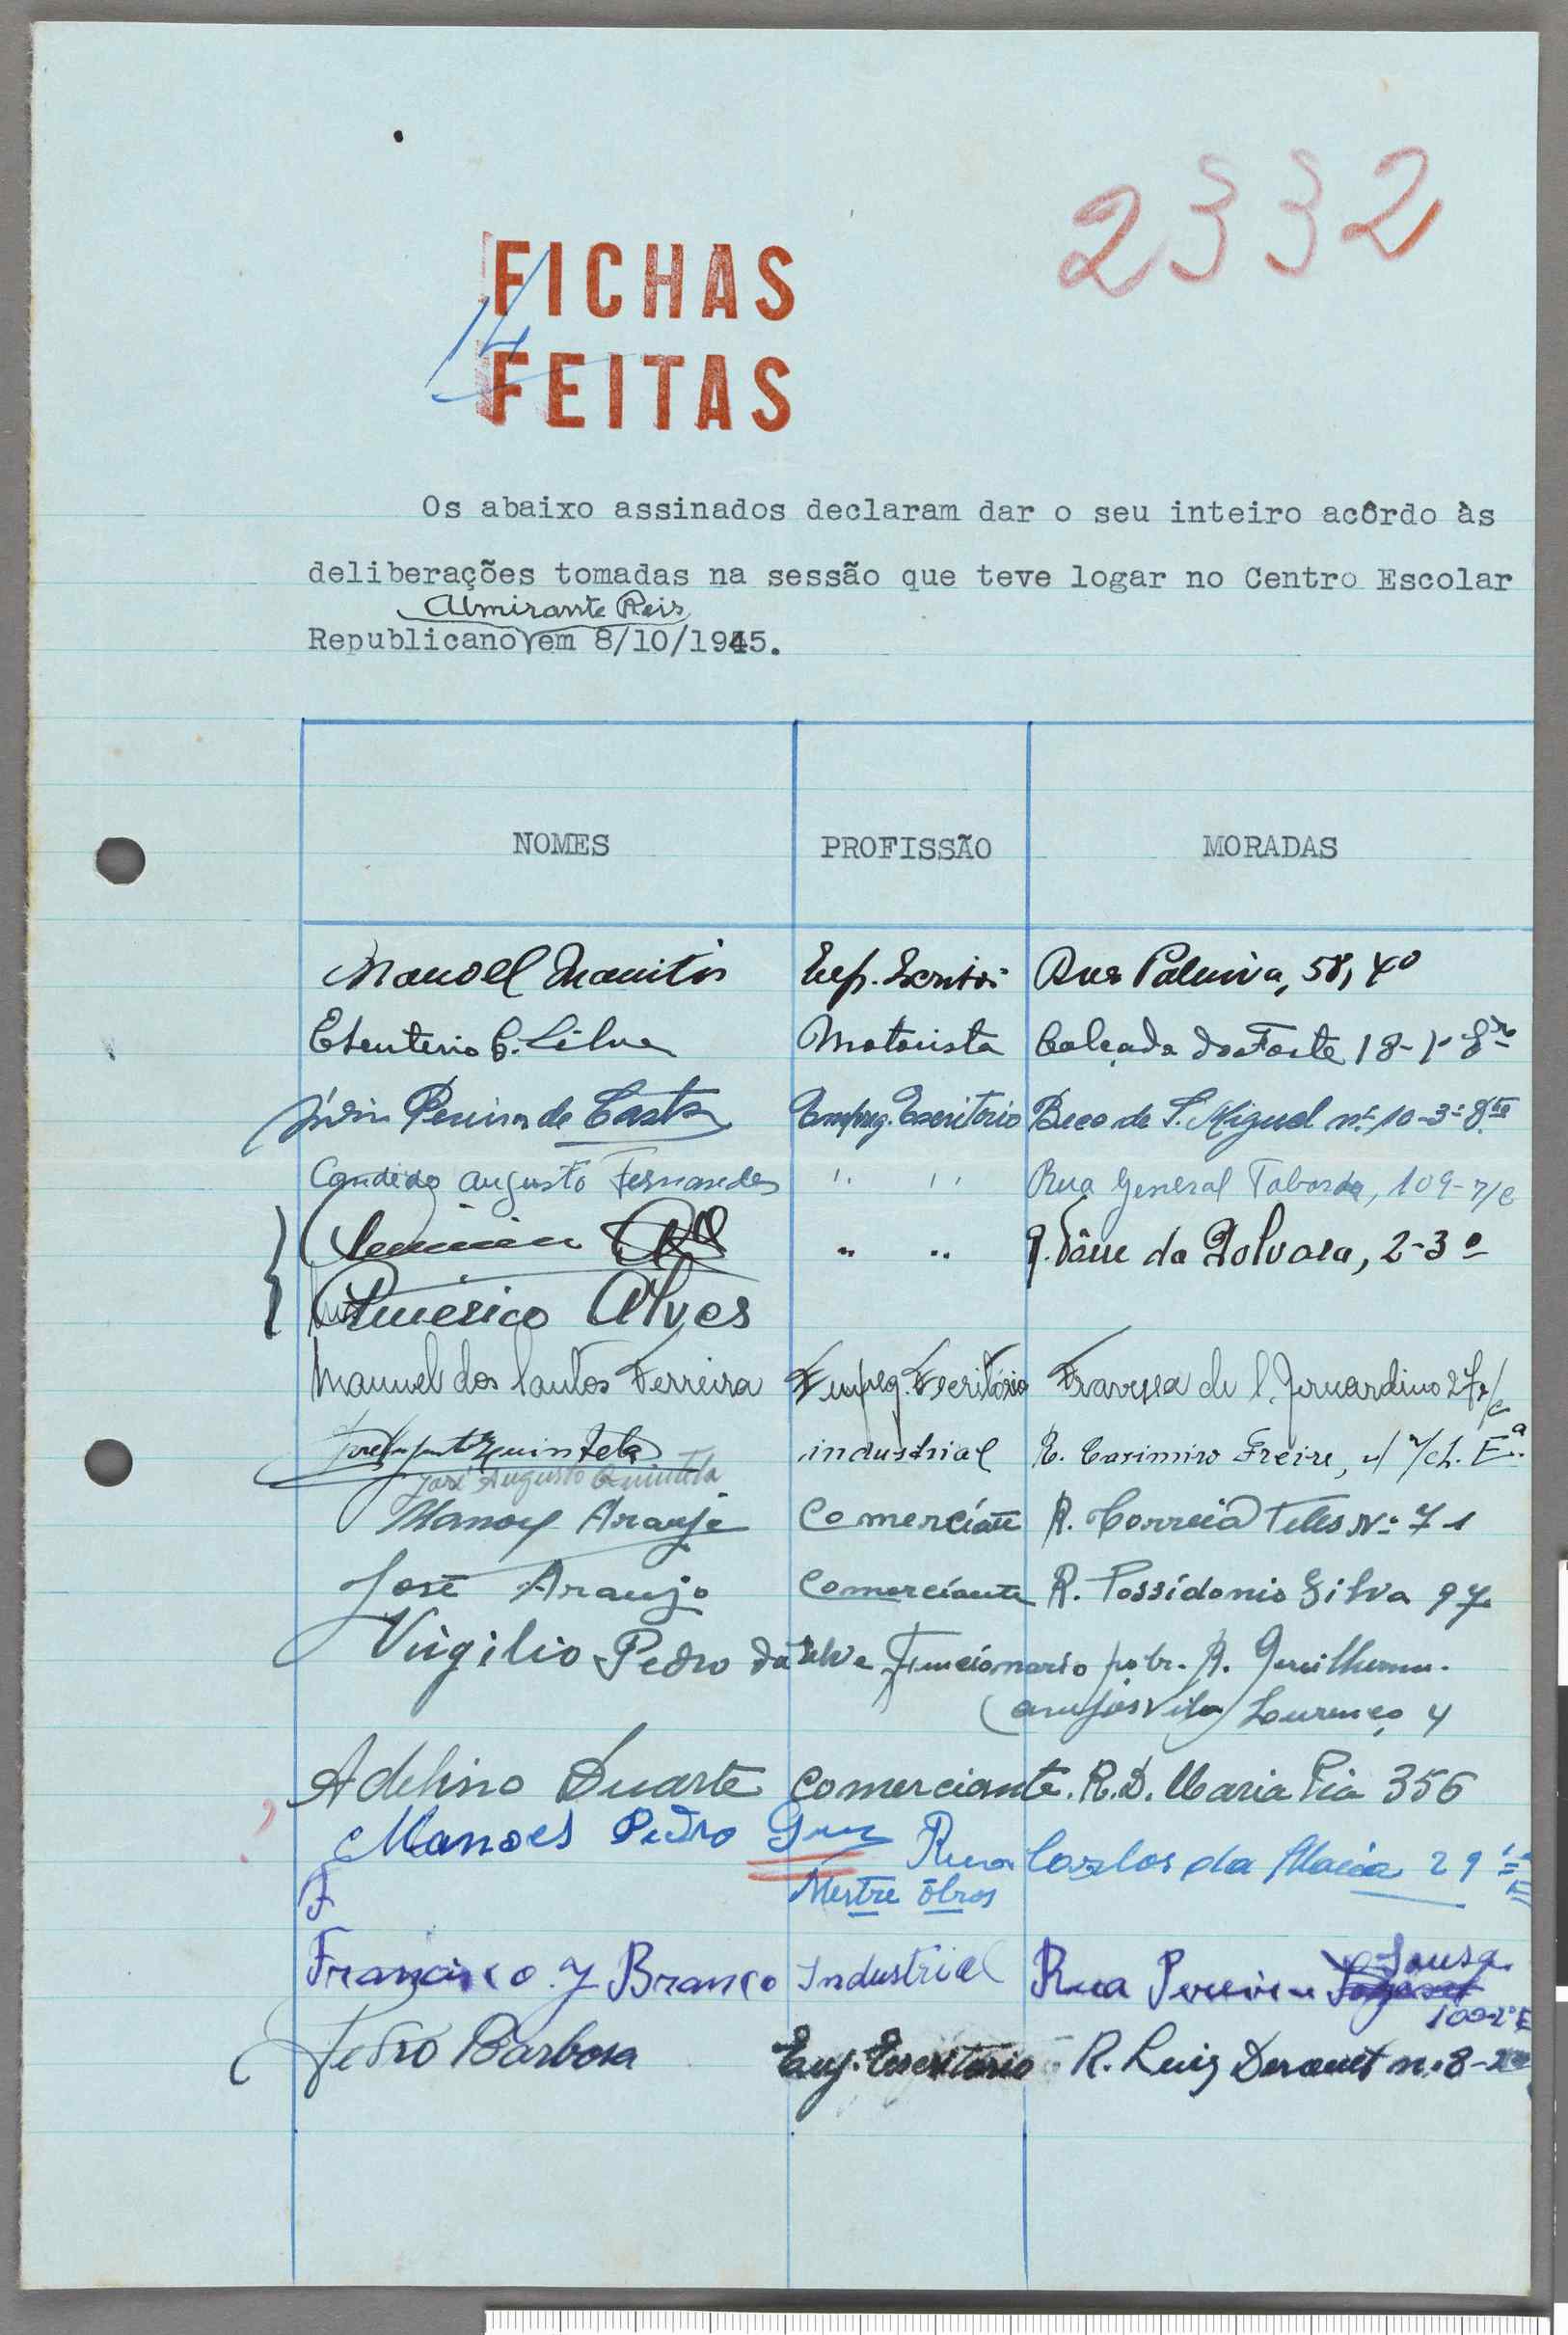 2332
FICHAS
14
FEITAS
Os abaixo assinados declaram dar o seu inteiro acôrdo às
deliberações tomadas na sessão que teve logar no Centro Escolar
Almirante Reis
Republicano em 8/10/1945.
NOMES PROFISSÃO MORADAS
Manoel Emp. Rua Palmira, 58, 4º
Eleuterio C. Silva Motorista Calçada do Forte 18-1º
Pereira de Castro Empreg. Escritorio Beco de S. Miguel nº 10-3º
Candido Augusto Fernandes " " Rua General Taborda, 109-r/c
" " da Polvora, 2-3º
Americo Alves
Manuel dos Santos Ferreira Empreg. Escritório Travessa de S. Bernardino
Quintela industrial R. Casimiro Freire,
José Augusto Quintela
Manoel Araujo Comerciante R. Correia Teles Nº 71
José Araujo Comerciante R. Possidonio Silva 97
Virgilio Pedro da Silva Funcionario R. Guilherme
Anjos Vila Lourenço 4
Adelino Duarte Comerciante R. D. Maria Pia 356
Manoel Pedro Rua Carlos da Maia 29
Mestre Obras
F
Sousa
Francisco J Branco Industrial Rua Pereira
100-2º E
Pedro Barbosa Emp. Escritorio R. Luiz Derouet n.º 8-2º